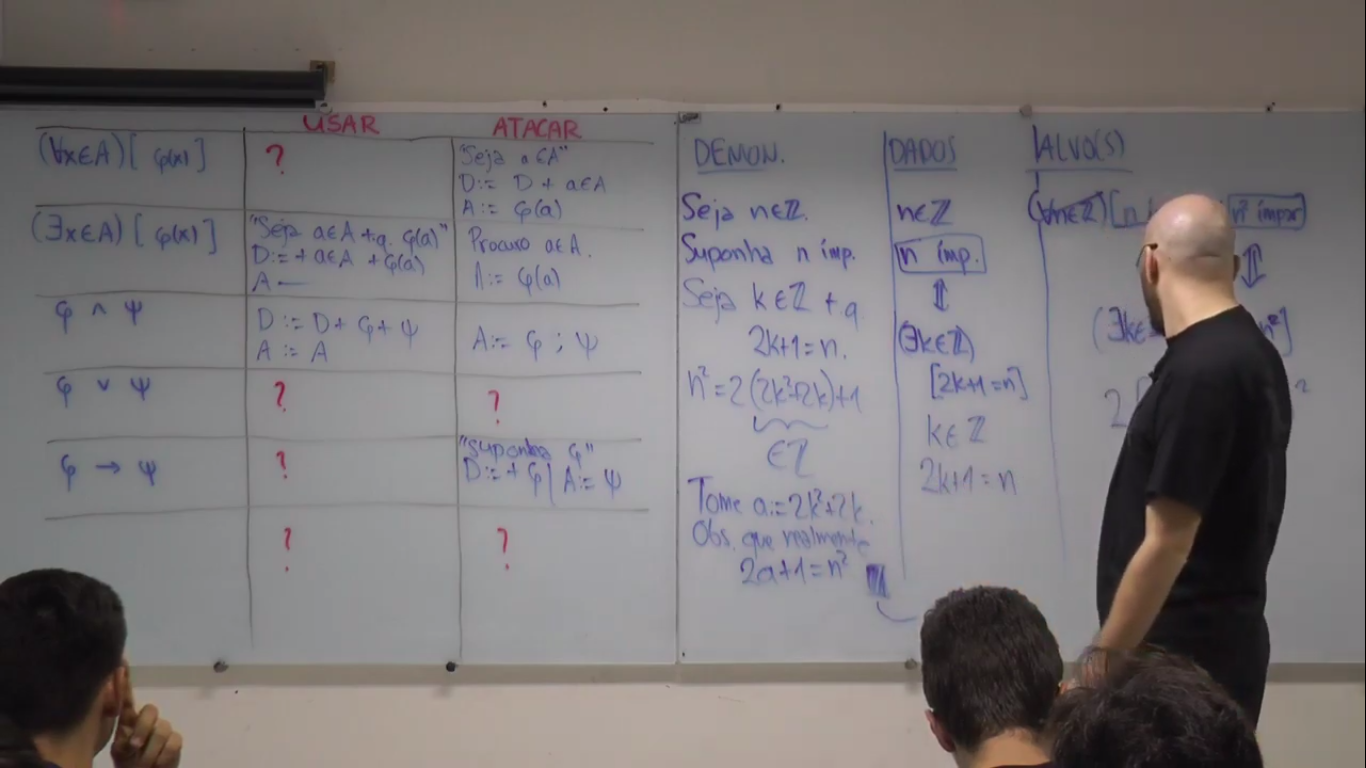 USAR ATACAR
(∀x∈A)[φ(x)] ? "Seja a∈A"
D:= D + a∈A
A:= φ(a)
(∃x∈A)[φ(x)] "Seja a∈A t.q. φ(a)" Procuro a∈A.
D:= + a∈A + φ(a) A:= φ(a)
A —
φ ∧ ψ D:= D + φ + ψ A:= φ ; ψ
A:= A
φ ∨ ψ ? ?
φ → ψ ? "Suponha φ"
D:= + φ | A:= ψ
? ?
DEMON.
Seja n∈ℤ.
Suponha n ímp.
Seja k∈ℤ t.q.
2k+1=n.
n²=2(2k²+2k)+1
∈ℤ
Tome a:=2k²+2k.
Obs. que realmente
2a+1=n²
DADOS
n∈ℤ
n ímp.
⇕
(∃k∈ℤ)
[2k+1=n]
k∈ℤ
2k+1=n
ALVO(S)
(∀n∈ℤ)[n n² ímpar]
⇕
(∃k∈ n²]
2 ²